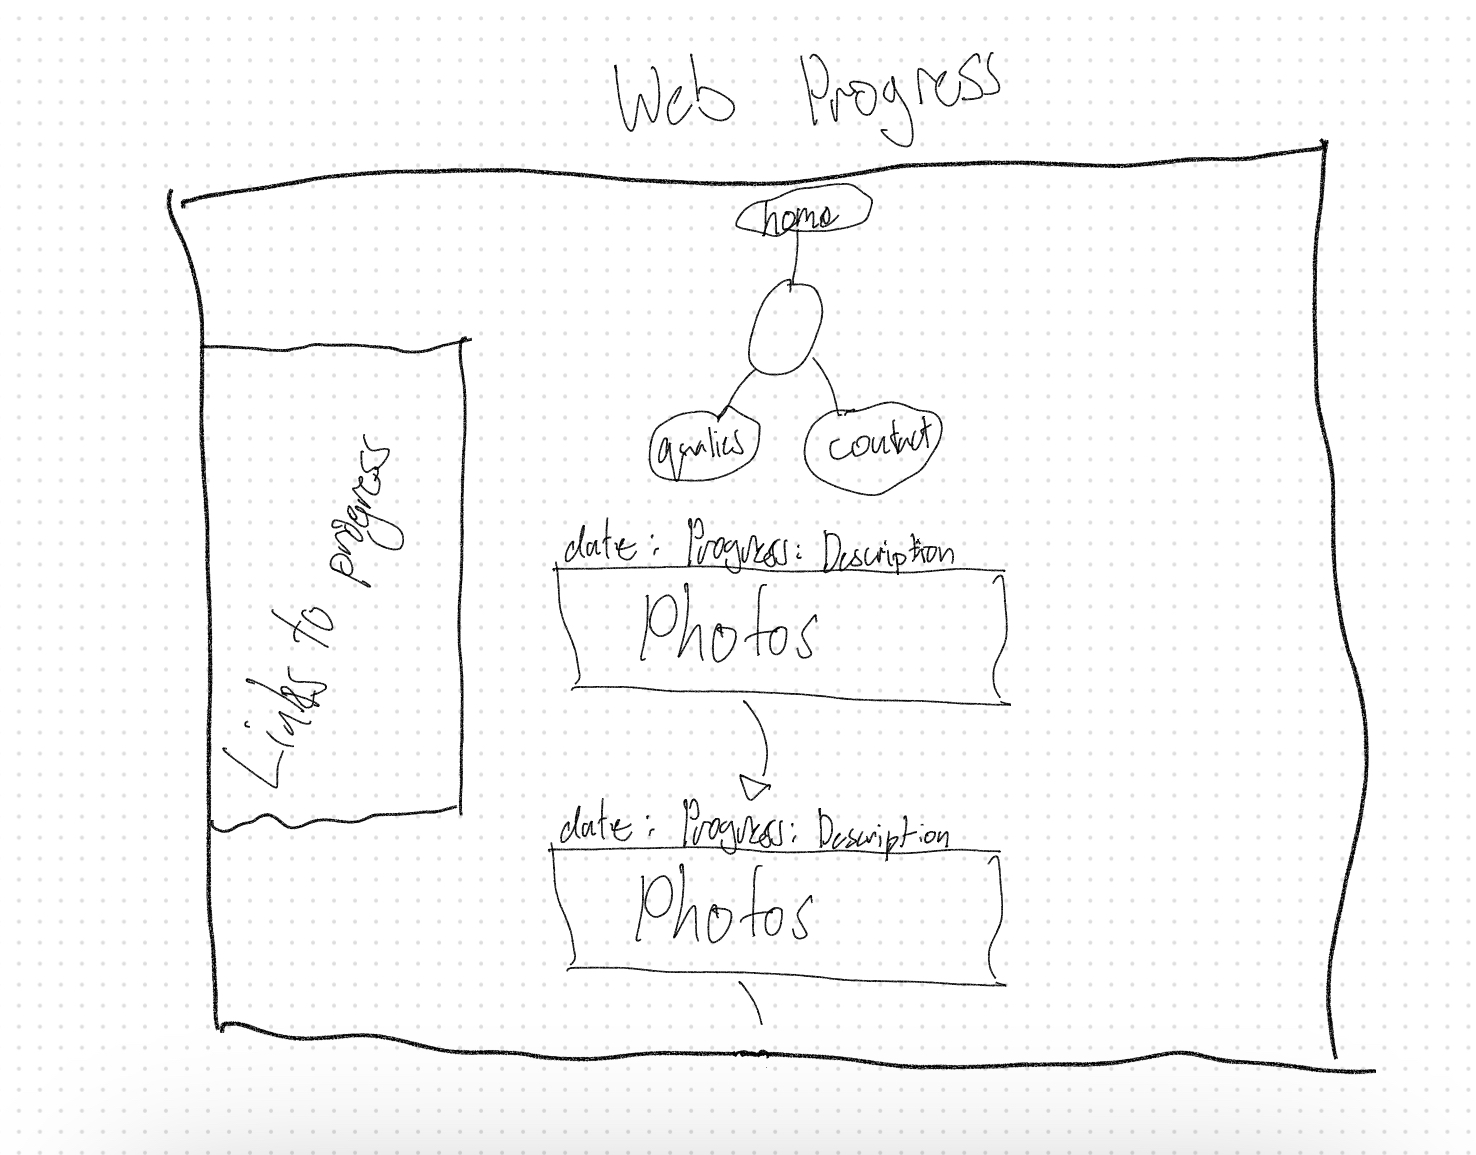 Web Progress
home
contact
Links to
progress
date: Progress: Description
Photos
date: Progress: Description
Photos